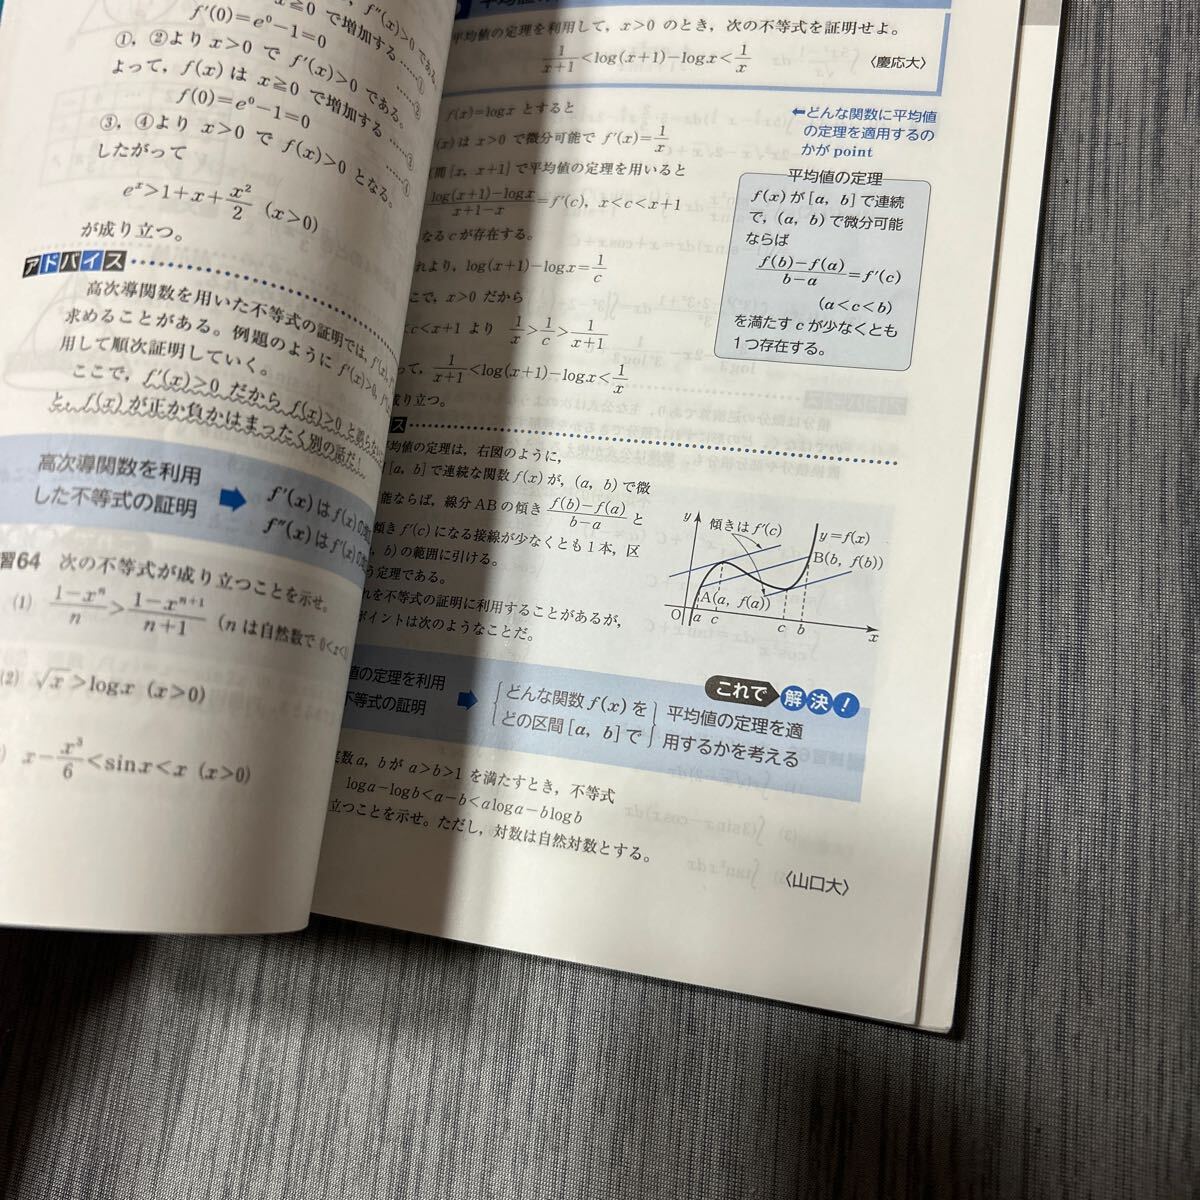 f'(0)=e⁰−1=0
①, ②より x>0 で f'(x)>0 である。
よって, f(x) は x≧0 で増加する ……③
f(0)=e⁰−1=0 ……④
③, ④より x>0 で f(x)>0 となる。
したがって
eˣ>1+x+x²/2 (x>0)
が成り立つ。
アドバイス
高次導関数を用いた不等式の証明では,
求めることがある。例題のように
用して順次証明していく。
ここで, f'(x)>0 だから f(x)>0 と
と, f(x) が正か負かはまったく別の話だ!
高次導関数を利用
した不等式の証明
f'(x) は f(x) の
f''(x) は f'(x) の
習64 次の不等式が成り立つことを示せ。
(1) (1−xⁿ)/n > (1−xⁿ⁺¹)/(n+1) (n は自然数で
(2) √x >logx (x>0)
) x−x³/6<sinx<x (x>0)
平均値の定理を利用して, x>0 のとき, 次の不等式を証明せよ。
1/(x+1)<log(x+1)−logx<1/x
〈慶応大〉
f(x)=logx とすると
(x) は x>0 で微分可能で f'(x)=1/x
間 [x, x+1] で平均値の定理を用いると
(log(x+1)−logx)/(x+1−x)=f'(c), x<c<x+1
なる c が存在する。
れより, log(x+1)−logx=1/c
こで, x>0 だから
<c<x+1 より 1/x>1/c>1/(x+1)
って, 1/(x+1)<log(x+1)−logx<1/x
成り立つ。
←どんな関数に平均値
の定理を適用するの
かが point
平均値の定理
f(x) が [a, b] で連続
で, (a, b) で微分可能
ならば
(f(b)−f(a))/(b−a)=f'(c)
(a<c<b)
を満たす c が少なくとも
1つ存在する。
ス
均値の定理は, 右図のように,
[a, b] で連続な関数 f(x) が, (a, b) で微
能ならば, 線分 AB の傾き (f(b)−f(a))/(b−a) と
傾き f'(c) になる接線が少なくとも1本, 区
, b) の範囲に引ける。
う定理である。
れを不等式の証明に利用することがあるが,
ポイントは次のようなことだ。
y
傾きは f'(c)
y=f(x)
B(b, f(b))
A(a, f(a))
O a c c b x
値の定理を利用
不等式の証明
これで解決!
どんな関数 f(x) を
どの区間 [a, b] で
平均値の定理を適
用するかを考える
実数 a, b が a>b>1 を満たすとき, 不等式
loga−logb<a−b<aloga−blogb
立つことを示せ。ただし, 対数は自然対数とする。
〈山口大〉